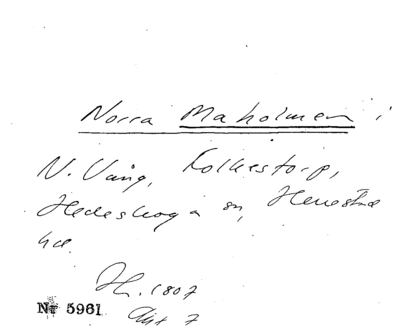 Norra Maholmen i
N. Vång, Folkestorp,
Hedeskoga sn, Herrestad
hd.
H. 1807
Akt 7
Nr 5961